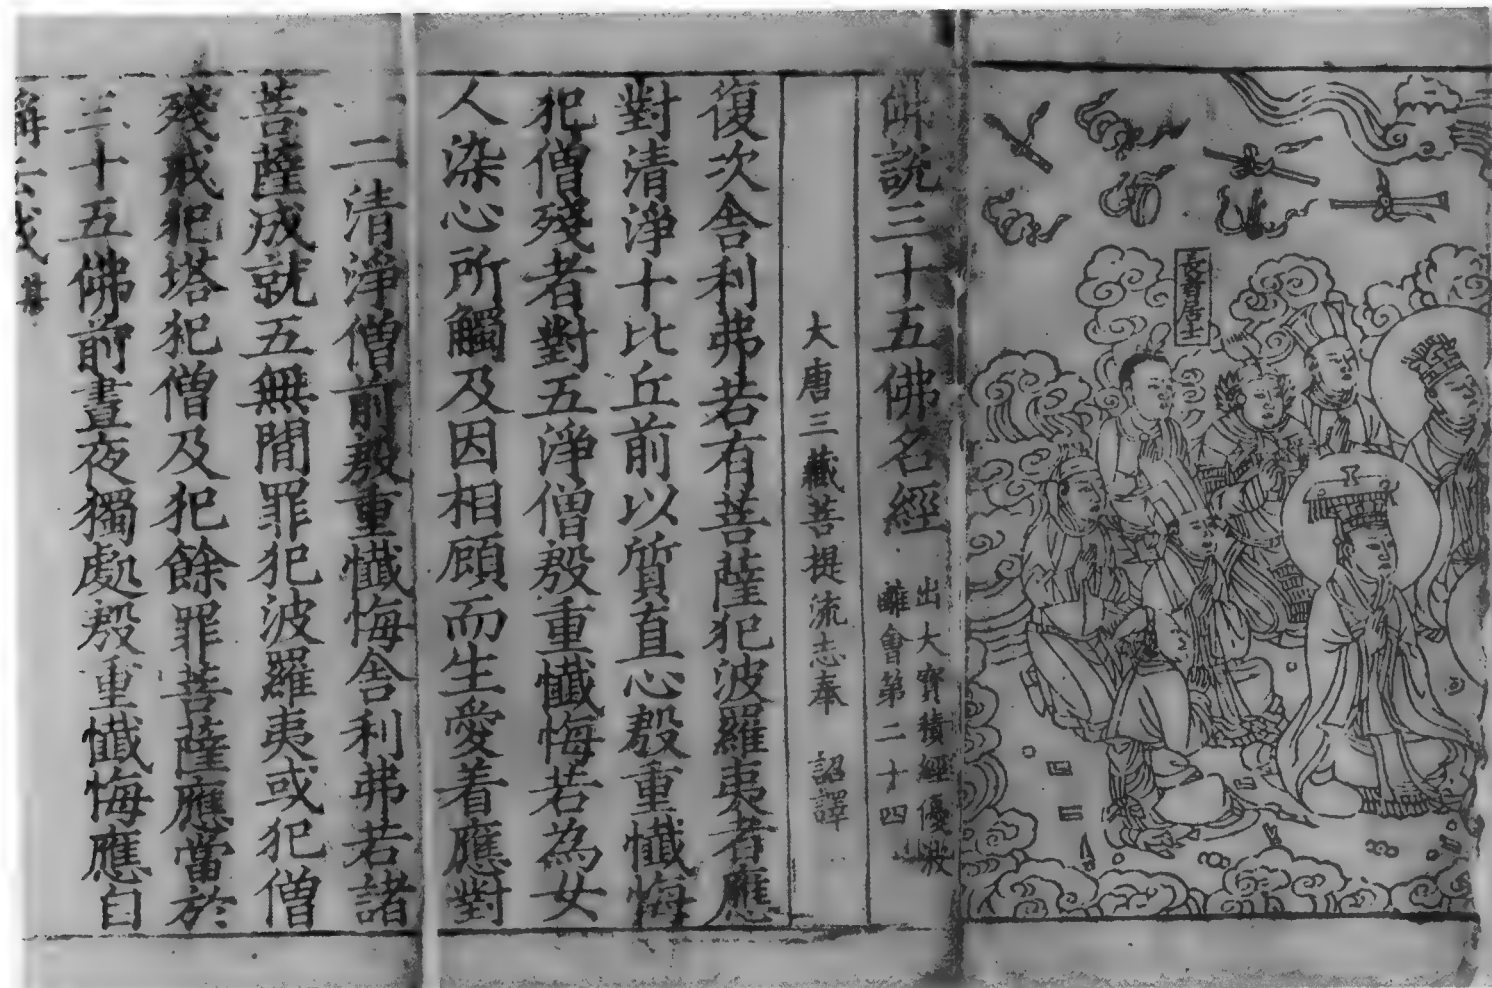 長者居士
佛說三十五佛名經
出大寶積經優波
離會第二十四
大唐三藏菩提流志奉 詔譯
復次舍利弗若有菩薩犯波羅夷者應
對清淨十比丘前以質直心殷重懺悔
犯僧殘者對五淨僧殷重懺悔若為女
人染心所觸及因相顧而生愛着應對
一二清淨僧前殷重懺悔舍利弗若諸
菩薩成就五無間罪犯波羅夷或犯僧
殘戒犯塔犯僧及犯餘罪菩薩應當於
三十五佛前晝夜獨處殷重懺悔應自
稱云我某